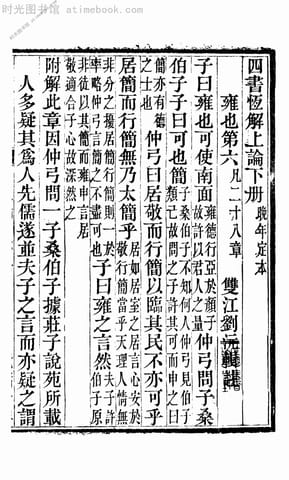 时光图书馆 - atimebook.com
四書恆解上論下册 晚年定本
雍也第六 凡二十八章 雙江劉沅輯註
子曰雍也可使南面 雍德行亞於顏子故許以君人之量 仲弓問子桑
伯子子曰可也簡 子桑伯子不知何人仲弓見伯子類己故問之子許其可而申之曰
簡亦有德之士也 仲弓曰居敬而行簡以臨其民不亦可乎
居簡而行簡無乃太簡乎 居如居室之居言心安於敬行簡當乎天理人情無
非分之擾居簡行簡則一於率略仲弓言簡之不盡可也 子曰雍之言然 伯子原
非徒以其簡而雍申言居敬適合于心故深然之
附解此章因仲弓問一子桑伯子據莊子說苑所載
人多疑其爲人先儒遂並夫子之言而亦疑之謂